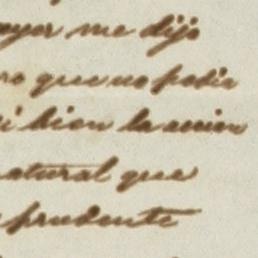 me dijo
que no podia
bien la union
natural que
prudente